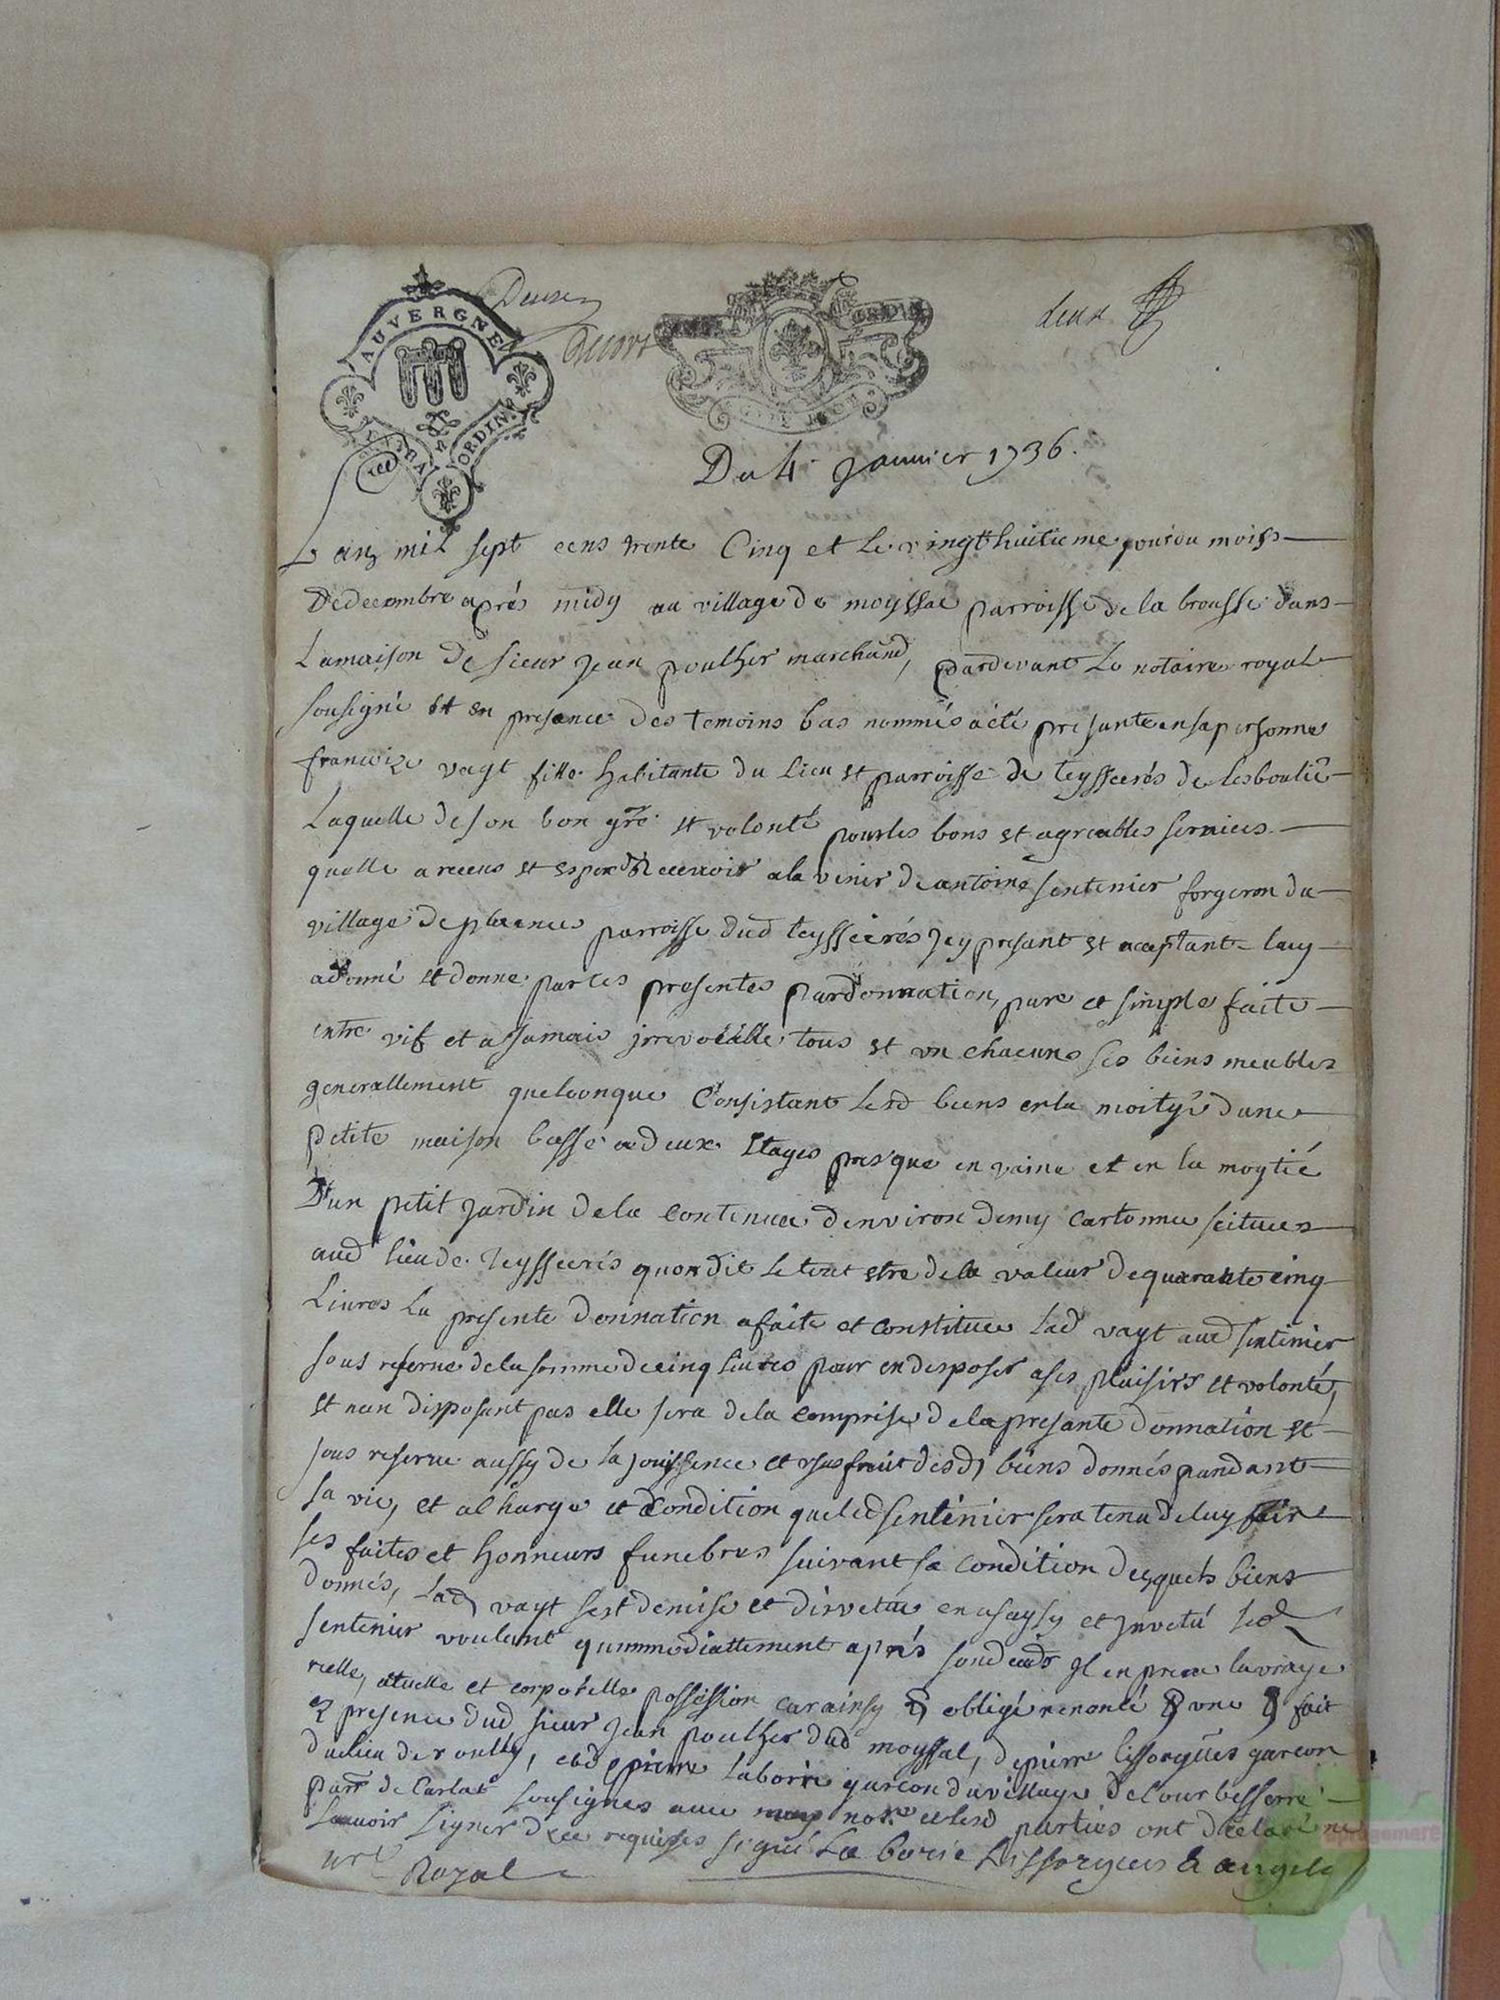 AUVERGNE
ORDIN.
deux
Du 4 Janvier 1736.
L an mil sept cens trente Cinq et le vingt huitieme jour du mois
De decembre après midy au village de moyssac parroisse de la brousse dans
La maison De sieur Jean poulher marchand, pardevant Le notaire royal
sousigné Et en presance des temoins bas nommés a été presante en sa personne
francoize vayt fille habitante du Lieu et parroisse de teyssieres de lesboulie
Laquelle de son bon gré et volonté pour les bons et agreables services
quelle a receus et espere Recevoir a la venir de antoine sentenier forgeron du
village de parroisse dud teyssieres Jcy presant et aceptant luy
a donné et donne par ces presentes par donnation pure et simple faite
entre vif et a Jamais jrrevocable tous et un chacuns ses biens meubles
generallement quelconque Consistant Lesd biens en la moityé dune
petite maison basse a deux Etages pres que en ruine et en la moytié
D'un petit Jardin de la contenue denviron demy cartonnee scitues
aud lieu de teyssieres quon dit le tout etre de la valeur de quarante cinq
Livres La presente donnation a faite et constituee Lad vayt aud sentenier
sous reserve de la somme de cinq livres pour en disposer a ses plaisirs et volonté,
et non disposant pas elle sera de la comprise de la presante donnation et
sous reserve aussy de la jouissence et usufruit desd biens donnés pandant
sa vie, et a lharge et Condition que led sentenier sera tenu de luy faire
ses faites et honneurs funebres suivant sa condition desquels biens
donnés, Lad vayt sest demise et disvetue en a saysy et Jnvetu led
sentenier voulant qummediattement aprés son decéds Jl en prene la vraye
reelle, atuelle et corporelle possession car ainsy obligé renoncé fait
presence dud sieur Jean poulher dud moyssac, de pierre Lissorgues garcon
du lieu de et de pierre Laborie garcon du village de Courbesserre
parr de Carlat sousignes avec moy not.re et lesd parties ont declaré ne
scavoir signer de ce requises signé La borie Lissorgues &
Royal